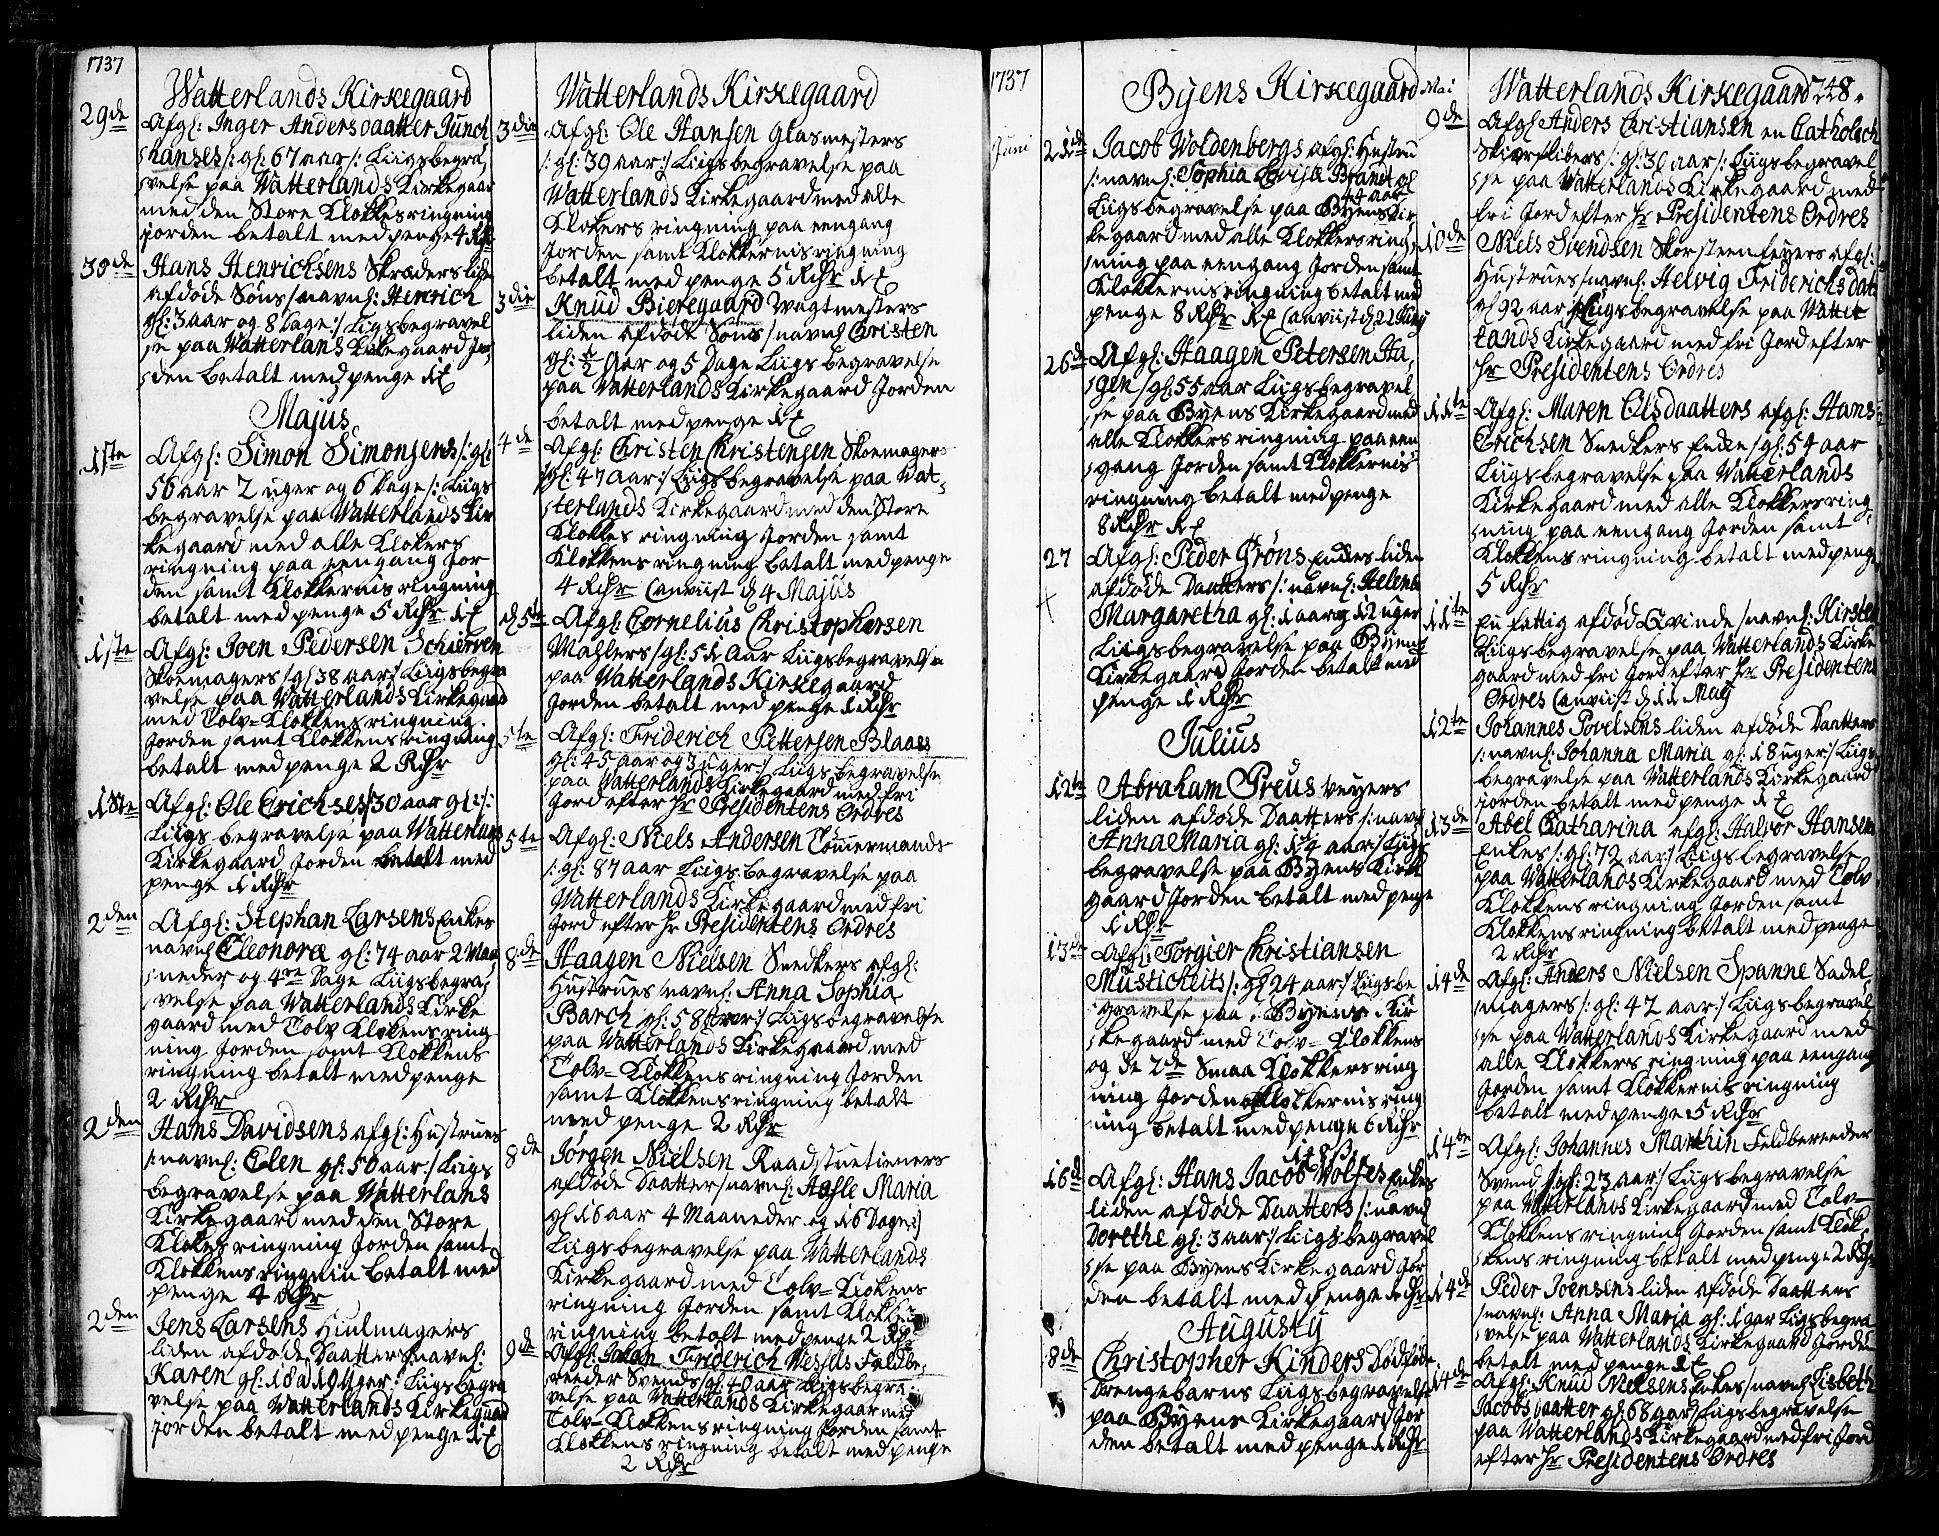 1737
Watterlands Kirkegaard
29de Afgl: Inger Andersdaatter Junch
hanses /: gl: 67 aar /: Liigsbegra,
velse paa Watterlands Kirkegaar
med den Store Klokkes ringning
jorden betalt med penge 4 Rdr
30de Hans Henrichsens Skræders liden
afdøde Søns / navnl: Henrich
gl: 3 aar og 8 Dage :/ Liigsbegravel
se paa Watterlans Kirkegaard Jor,
den betalt med penge
Majus
1ste Afgl: Simon Simonsens /: gl:
56 aar 2 uger og 6 Dage /: Liigs
begravelse paa Watterlands Kir
kegaard med alle Klokers
ringning paa eengang Jor
den samt Klokkernis ringning
betalt med penge 5 Rdr
1ste Afgl: Joen Pedersen Schierven
Skoemagers / gl 38 aar / Liigsbegra
velse paa Watterlands Kirkegaard
med Tolv=Klokkens ringning
Jorden samt Klokkens ringning
betalt med penge 2 Rdr
1ste Afgl: Ole Erichses / 30 aar gl: /:
Liigs begravelse paa Watterlans
Kirkegaard Jorden betalt med
penge 1 Rdr
2den Afgl: Stephan Larsens Enkes
navnl Eleonora gl: 74 aar 2 Maa
neder og 4re Dage Liigsbegra,
velse paa Watterlands Kirke
gaard med Tolv Klokens ring
ning Jorden samt Klokkens
ringning betalt med penge
2 Rdr
2den Hans Davidsens afgl: Hustrues
/: navnl: Elen gl: 50 aar :/ Liigs
begravelse paa Watterlans
Kirkegaard med den Store
Klokes ringning Jorden samt
Klokkens ringnin betalt med
penge 4 Rdr
2den Jens Larsens Hiulmagers
liden afdøde Daatters / navnl:
Karen gl: 1 Aar 19 Uger: Liigsbegra
velse paa Watterlands Kirkegaard
Jorden betalt med penge
Watterlands Kirkegaard
3die Afgl: Ole Hansen Glasmesters
/: gl: 39 aar :/ Liigs begravelse paa
Watterlands Kirkegaard med alle
Klokers ringning paa eengang
Jorden samt Klokkernis ringning
betalt med penge 5 Rdr
3die Knud Bieregaard Wagtmesters
liden afdøde Søns / navnl Christen
gl: ½ Aar og 5 Dage Liigs begravelse
paa Watterlands Kirkegaard Jorden
betalt med penge
4de Afgl: Christen Christensen Skoemagers
/gl: 47 Aar:/ Liigsbegravelse paa Wat,
terlands Kirkegaard med den Store
Klokkes ringning Jorden samt
Klokkens ringning betalt med penge
4 Rdr Anviist d 4 Majus
d 5te Afgl: Cornelius Christophersen
Mahlers / gl: 51 Aar Liigsbegravelse
paa Watterlands Kirkegaard
Jorden betalt med penge 1 Rdr
5te Afgl: Friderich Pettersen Blaaes
gl: 45 aar og 3 uger :/ Liigs begravelse
paa Watterlands Kirkegaard med fri
Jord efter Hr Presidentens Ordres
5te Afgl: Niels Andersen Tømermands
/: gl: 87 aar Liigs begravelse paa
Watterlands Kirkegaard med fri
Jord efter Hr Presidentens Ordres
8de Haagen Nielsen Snedkers afgl:
Hustrues / navnl: Anna Sophia
Barch gl: 58 Aar :/ Liigs begravelse
paa Watterlands Kirkegaard med
Tolv=Klokkens ringning Jorden
samt Klokkens ringning betalt
med penge 2 Rdr
8de Jørgen Nielsen Raadstuetieners
afdøde Daatter / navnl: Aasle Maria
gl 16 aar 4 Maaneder og 16 Dage :/
Liigsbegravelse paa Watterlands
Kirkegaard med Tolv=Klokens
ringning Jorden samt Klokkens
ringning betalt med penge 2 Rdr
9de Afgl: Johan Friderich Wessels Feldbe,
reeder Svends / gl: 40 aar Liigsbegra,
velse paa Watterlands Kirkegaar med
Tolv=Klokkens ringning Jorden samt
Klokkens ringning betalt med penge
2 Rdr
1737
Byens Kirkegaard
Juni
21de Jacob Woldenbergs afgl: Hustru
/: navnl: Sophia Lovisa Brandt gl
44 aar
Liigsbegravelse paa Byens Kir
kegaard med alle Klokkers ring,
ning paa eengang Jorden samt
Klokkernis ringning betalt med
penge 8 Rdr Anviist d 22 Junij
26de Afgl: Haagen Petersen Ha,
gen / gl: 55 aar Liigsbegravel
se paa Byens Kirkegaard med
alle Klokkers ringning paa een
gang Jorden samt Klokkernis
ringning betalt med penge
8 Rdr
27 Afgl: Peder Grøns Enckes liden
afdøde Daatters /: navnl: Helena
Margaretha gl: 1 aar og 12 uger
Liigsbegravelse paa Byens
Kirkegaard Jorden betalt med
penge 1 Rdr
Julius
12te Abraham Preus Veyers
liden afdøde Daatters /: navnl
Anna Maria gl: 1¾ aar:/ Liigs
begravelse paa Byens Kirke
gaard Jorden betalt med penge
1 Rdr
13de Afgl: Torgier Christiansen
Musticheits /: gl 24 aar:/ Liigsbe
gravelse paa Byens Kir
kegaard med Tolv=Klokkens
og de 2de Smaa Klokkers ring
ning Jorden Klokkernis ring
ning betalt med penge 6 Rdr
16de Afgl: Hans Jacob Wolfes Enkes
liden afdøde Daatters /: navnl
Dorethe gl: 3 aar:/ Liigs begravel
se paa Byens Kirkegaard Jor
den betalt med penge 1 Rdr
Augusty
8de Christopher Kinders Dødfødde
Drengebarns Liigsbegravelse
paa Byens Kirkegaard Jor
den betalt med penge 1 Rdr
Mai
Watterlands Kirkegaard 248.
9de Afgl Anders Christiansen en Catholsch
/: gl: 30 aar /: Liigsbegravel
se paa Watterlands Kirkegaard med
fri Jord efter Hr Presidentens Ordres
10de Niels Svendsen Skorsteenfeyers afgl:
Hustrues / navnl: Helvig Friderichsdat
gl 92 aar / Liigsbegravelse paa Watter
lands Kirkegaard med fri Jord efter
Hr Presidentens Ordres
11te Afgl: Maren Olsdaatters afgl: Hans
Erichsen Snedkers Encke / gl: 54 aar
Liigsbegravelse paa Watterlands
Kirkegaard med alle Klokkers ring
ning paa eengang Jorden samt
Klokkens ringning betalt med penge
5 Rdr
11te En fattig afdød Qvinde / navnl: Kirsten
Liigsbegravelse paa Watterlands Kirke
gaard med fri Jord efter Hr Presidentens
Ordres Anviist d 11 Maij
12te Johannes Povelsens liden afdøde Daatters
/: navnl: Johanna Maria gl: 18 uger:/ Liigs
begravelse paa Watterlands Kirkegaard
Jorden betalt med penge
13de Abel Catharina afgl: Halvor Hansens
Enkes /: gl: 72 aar:/ Liigsbegravelse
paa Watterlands Kirkegaard med Tolv
Klokkens ringning Jorden samt
Klokkens ringning betalt med penge
2 Rdr
14de Afgl: Anders Nielsen Spanne Sadel
magers /: gl: 42 aar:/ Liigsbegravel
se paa Watterlands Kirkegaard med
alle Klokkers ringning paa eengang
Jorden samt Klokkernis ringning
betalt med penge 5 Rdr
14te Afgl: Johannes Marthin Feldbereeder
Svend / gl: 23 aar:/ Liigsbegravelse
paa Watterlands Kirkegaard med Tolv=
Klokkens ringning Jorden samt Klok,
kens ringning betalt med penge 2 Rdr
14de Peder Joensens liden afdøde Daatters
/ navnl: Anna Maria gl: 1 aar Liigsbegra
velse paa Watterlands Kirkegaard Jorden
betalt med penge
14de Afgl: Knud Nielsens Enkes / navnl Lisbeth
Jacobsdaatter gl 68 aar / Liigsbegravelse
paa Watterlands Kirkegaard med fri Jord
efter Hr Presidentens Ordres